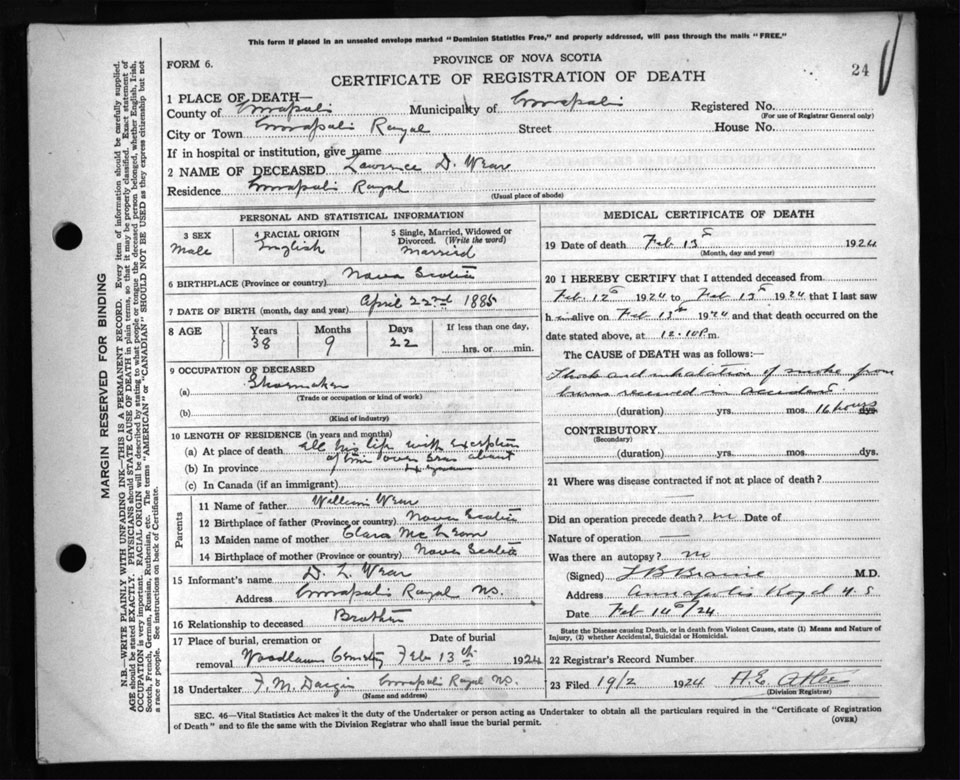 This form if placed in an unsealed envelope marked "Dominion Statistics Free," and properly addressed, will pass through the mails "FREE."
FORM 6.
PROVINCE OF NOVA SCOTIA
CERTIFICATE OF REGISTRATION OF DEATH
24
1 PLACE OF DEATH—
County of Annapolis Municipality of Annapolis Registered No.
(For use of Registrar General only)
City or Town Annapolis Royal Street House No.
If in hospital or institution, give name
2 NAME OF DECEASED Lawrence D. Wear
Residence Annapolis Royal
(Usual place of abode)
PERSONAL AND STATISTICAL INFORMATION
3 SEX 4 RACIAL ORIGIN 5 Single, Married, Widowed or Divorced. (Write the word)
Male English Married
6 BIRTHPLACE (Province or country) Nova Scotia
7 DATE OF BIRTH (month, day and year) April 22nd 1885
8 AGE Years Months Days If less than one day,
38 9 22 hrs. or min.
9 OCCUPATION OF DECEASED
(a) Shoemaker
(Trade or occupation or kind of work)
(b)
(Kind of industry)
10 LENGTH OF RESIDENCE (in years and months)
(a) At place of death all his life with exception
of time over seas about
(b) In province
(c) In Canada (if an immigrant)
Parents
11 Name of father William Wear
12 Birthplace of father (Province or country) Nova Scotia
13 Maiden name of mother Clara
14 Birthplace of mother (Province or country) Nova Scotia
15 Informant's name D. L. Wear
Address Annapolis Royal NS.
16 Relationship to deceased Brother
17 Place of burial, cremation or removal Date of burial
Woodlawn Cemetry Feb 13th 1924
18 Undertaker F. M. Dargie Annapolis Royal NS.
(Name and address)
MEDICAL CERTIFICATE OF DEATH
19 Date of death Feb 13th 1924
(Month, day and year)
20 I HEREBY CERTIFY that I attended deceased from
Feb 12th 1924 to Feb 13th 1924 that I last saw
him alive on Feb 13th 1924 and that death occurred on the
date stated above, at 12.10 P.m.
The CAUSE of DEATH was as follows:—
Shock and inhalation of smoke from
burns received in accident
(duration) yrs. mos. 16 hours dys.
CONTRIBUTORY
(Secondary)
(duration) yrs. mos. dys.
21 Where was disease contracted if not at place of death?
Did an operation precede death? no Date of
Nature of operation —
Was there an autopsy? no
(Signed) L B Braine M.D.
Address Annapolis Royal N.S
Date Feb 14th/24
State the Disease causing Death, or in death from Violent Causes, state (1) Means and Nature of Injury, (2) whether Accidental, Suicidal or Homicidal.
22 Registrar's Record Number
23 Filed 19/2 1924
(Division Registrar)
SEC. 46—Vital Statistics Act makes it the duty of the Undertaker or person acting as Undertaker to obtain all the particulars required in the "Certificate of Registration
of Death" and to file the same with the Division Registrar who shall issue the burial permit.
(OVER)
MARGIN RESERVED FOR BINDING
N.B.—WRITE PLAINLY WITH UNFADING INK—THIS IS A PERMANENT RECORD. Every item of information should be carefully supplied.
AGE should be stated EXACTLY. PHYSICIANS should STATE CAUSE OF DEATH in plain terms, so that it may be properly classified. Exact statement of
OCCUPATION is very important. RACIAL ORIGIN will be described by stating to what people or tongue the deceased person belonged, whether English, Irish,
Scotch, French, German, Russian, Ruthenian, etc. The terms "AMERICAN" or "CANADIAN" SHOULD NOT BE USED as they express citizenship but not
a race or people. See instructions on back of Certificate.